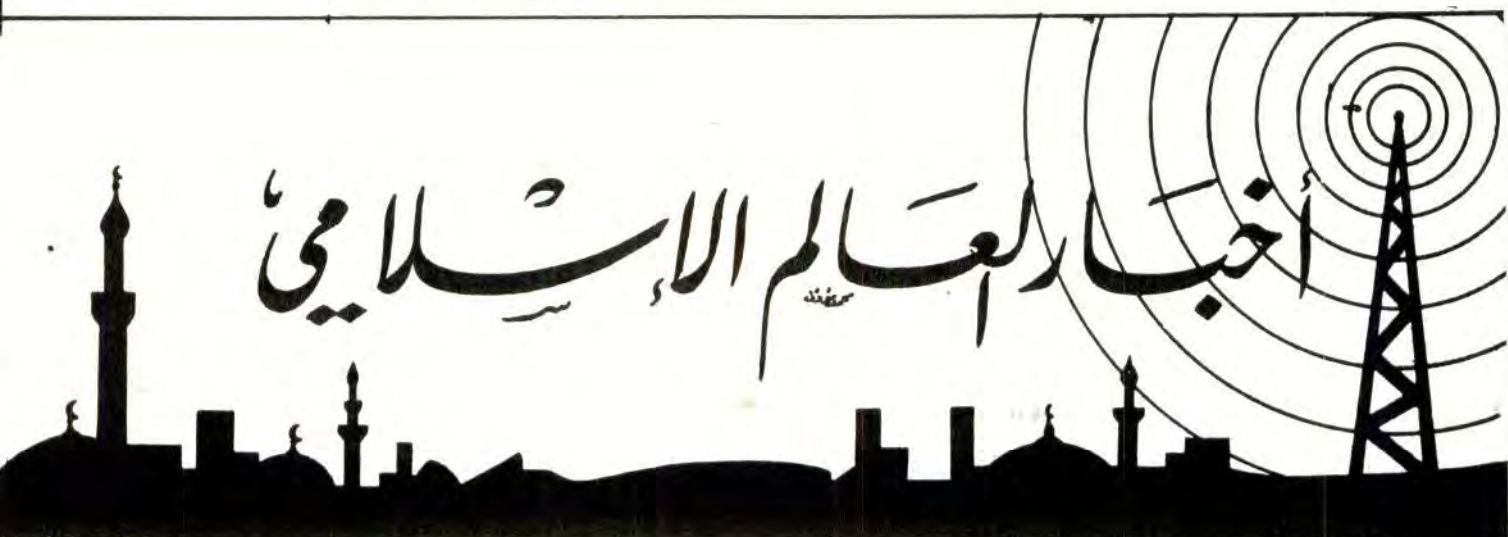 أخبار العالم الإسلامي